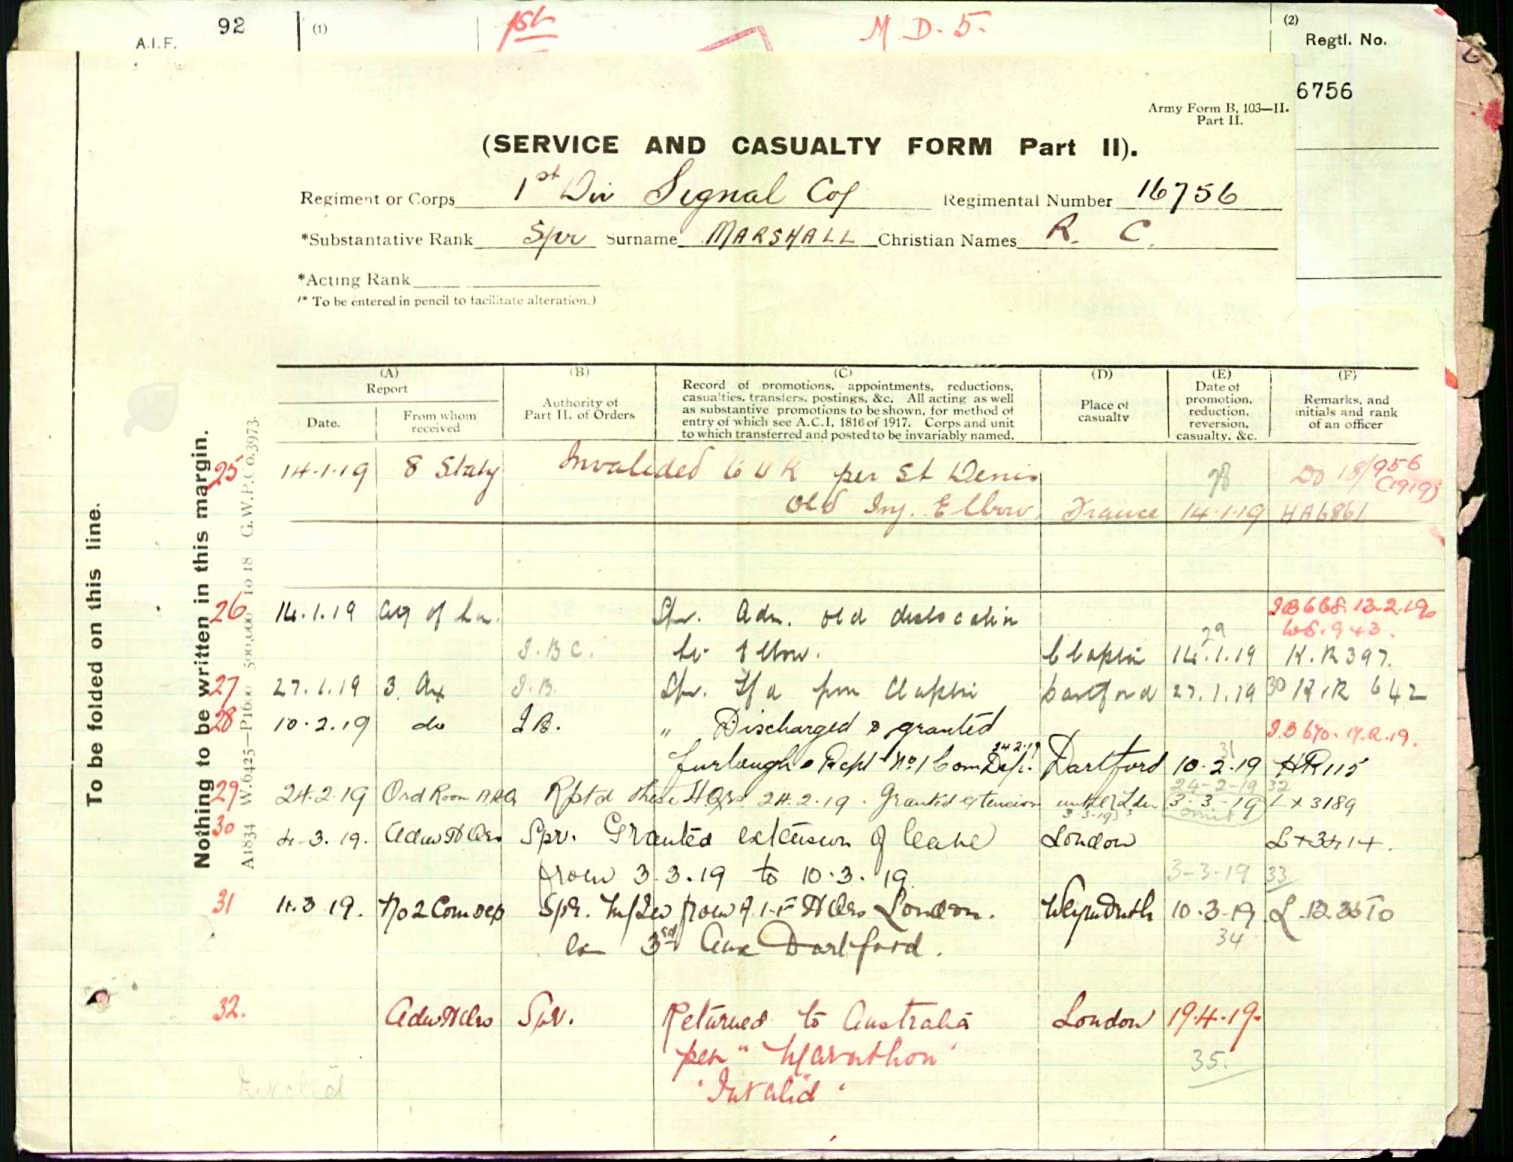 A.I.F. 92 (1) 1st M. D. 5. (2)
Regtl. No.
6756
Army Form B. 103—II.
Part II.
(SERVICE AND CASUALTY FORM Part II).
Regiment or Corps 1st Div Signal Coy Regimental Number 16756
*Substantative Rank Spr Surname MARSHALL Christian Names R. C.
*Acting Rank
(* To be entered in pencil to facilitate alteration.)
To be folded on this line.
Nothing to be written in this margin.
A1834 W.6425—P1600 500,000 10 18 G.W.P.Co.3973.
(A)
Report
Date.
From whom
received
(B)
Authority of
Part II. of Orders
(C)
Record of promotions, appointments, reductions,
casualties, transfers, postings, &c. All acting as well
as substantive promotions to be shown, for method of
entry of which see A.C.I. 1816 of 1917. Corps and unit
to which transferred and posted to be invariably named.
(D)
Place of
casualty
(E)
Date of
promotion,
reduction,
reversion,
casualty, &c.
(F)
Remarks, and
initials and rank
of an officer
25 14-1-19 8 Staty Invalided to UK per St Denis 28 DO 18/956
(1919)
Old Inj. Elbow France 14-1-19 HA6861
26 14.1.19 Spr. Adm. old dislocation
29
I.B.C. Elbow. Clapton 14.1.19 K.R 397.
27 27.1.19 3. Ax I.B. Spr. Tfd from Clapton Dartford 27.1.19 30 K.R 642
28 10.2.19 do I.B. " Discharged & granted I.B 670. 17.2.19.
24.2.19 31
furlough & Rept No 1 Com Dep. Dartford 10.2.19 HR115
24-2-19 32
29 24.2.19 Ord Room AHQ Rptd these HQrs 24.2.19. Granted extension until 3-3-19 LX3189
30 4-3.19. Adm HQrs Spr. Granted extension of leave London
from 3.3.19 to 10.3.19 3-3-19 33
31 11.3.19. No 2 Com dep Spr. M/In from A.I.F HQrs London. Weymouth 10-3-19
34
ex 3rd Aux Dartford.
32. Adm HQrs Spr. Returned to Australia London 19.4.19.
per "Marathon" 35.
"Invalid"